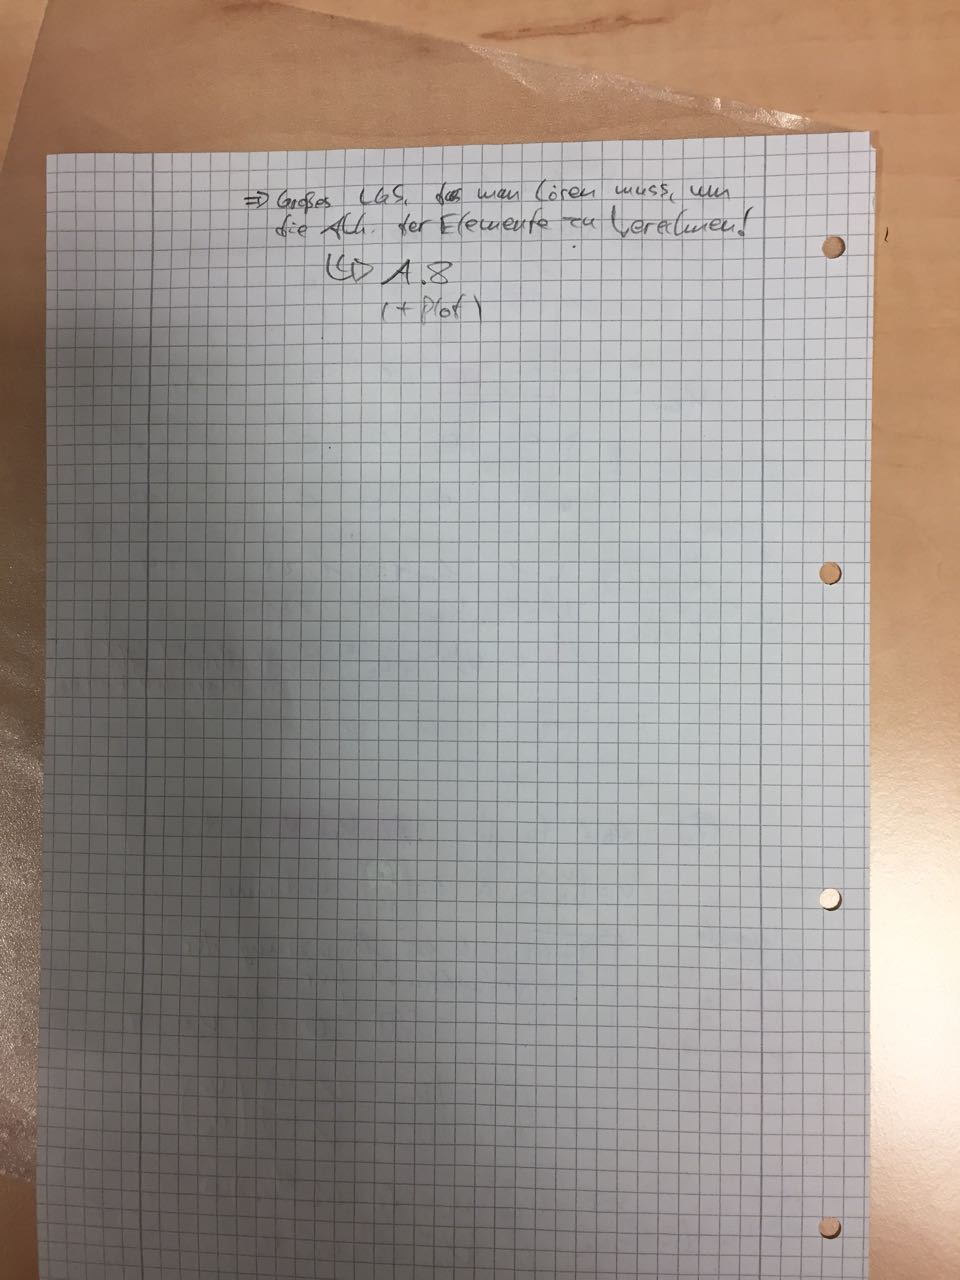 ⇒ Großes LGS, das man lösen muss, um
die Abh. der Elemente zu berechnen!
↳ A.8
(+ Plot)